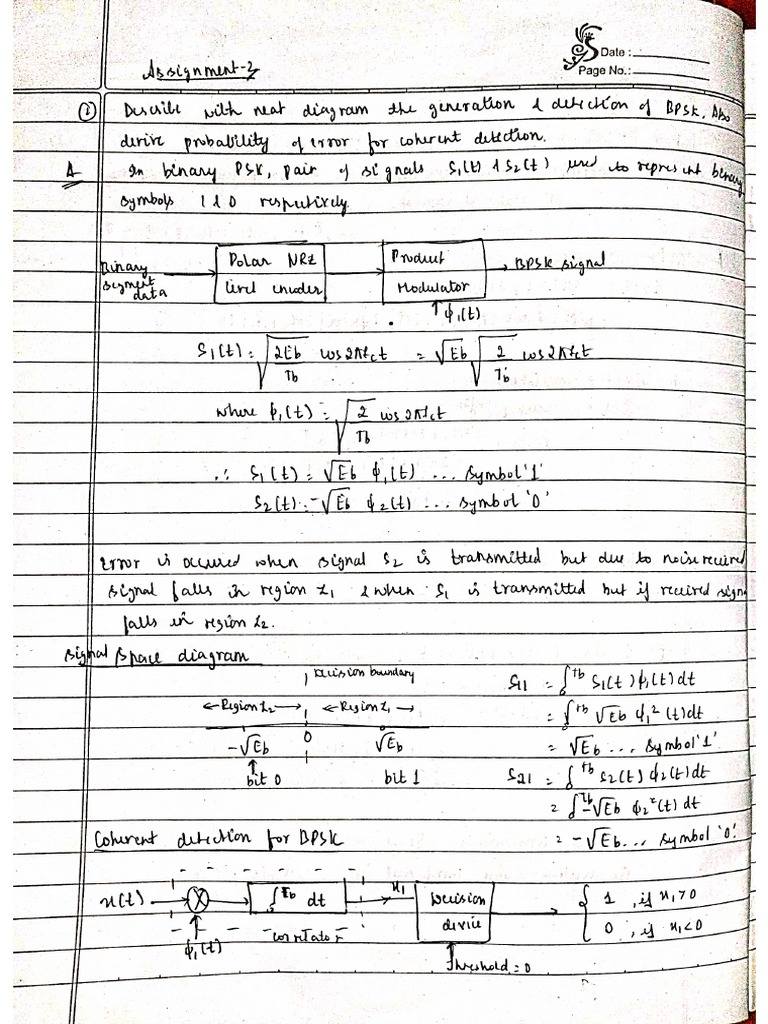 Date :
Page No.:
Assignment-2
② Describe with neat diagram the generation & detection of BPSK, Also
derive probability of error for coherent detection.
A In binary PSK, pair of signals S1(t) & S2(t) used to represent binary
symbols 1 & 0 respectively.
Binary segment data
Polar NRZ level encoder
Product Modulator
BPSK signal
ϕ1(t)
S1(t) = √(2Eb/Tb) cos2πfct = √Eb √(2/Tb) cos2πfct
where ϕ1(t) = √(2/Tb) cos2πfct
∴ S1(t) = √Eb ϕ1(t) ... symbol '1'
S2(t) = -√Eb ϕ2(t) ... symbol '0'
error is occured when signal S2 is transmitted but due to noise received
signal falls in region Z1 & when S1 is transmitted but if received sign
falls in region Z2.
signal space diagram
Decision boundary
←Region Z2→ ←Region Z1→
-√Eb 0 √Eb
bit 0 bit 1
S11 = ∫0^Tb S1(t) ϕ1(t) dt
= ∫0^Tb √Eb ϕ1²(t) dt
= √Eb ... symbol '1'
S21 = ∫0^Tb S2(t) ϕ2(t) dt
= ∫0^Tb -√Eb ϕ2²(t) dt
= -√Eb ... symbol '0'.
Coherent detection for BPSK
x(t)
ϕ1(t)
∫0^Tb dt
correlator
x1
Decision device
Threshold = 0
1 , if x1>0
0 , if x1<0